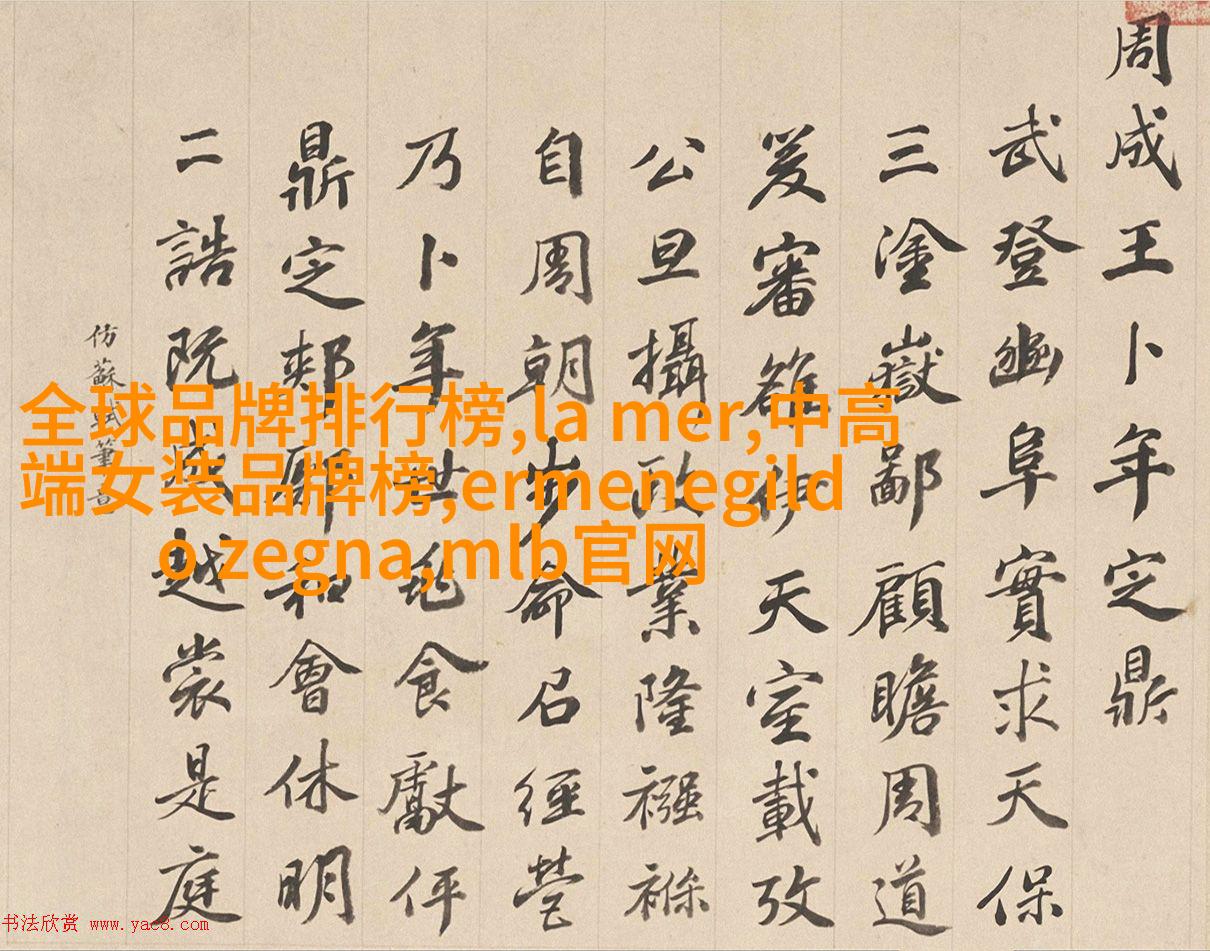 周成王卜年定鼎
武登豳阜實求天保
三塗嶽鄙顧瞻周道
爰審雒伊天室載攷
公旦攝政業隆襁褓
自周朝步命召經營
乃卜年世龜食獻伻
鼎定郟鄏和會休明
二誥既成越裳是庭
仿蘇軾筆意
全球品牌排行榜,la mer,中高
端女装品牌榜,ermenegild
o zegna,mlb官网
书法欣赏 www.yac8.com